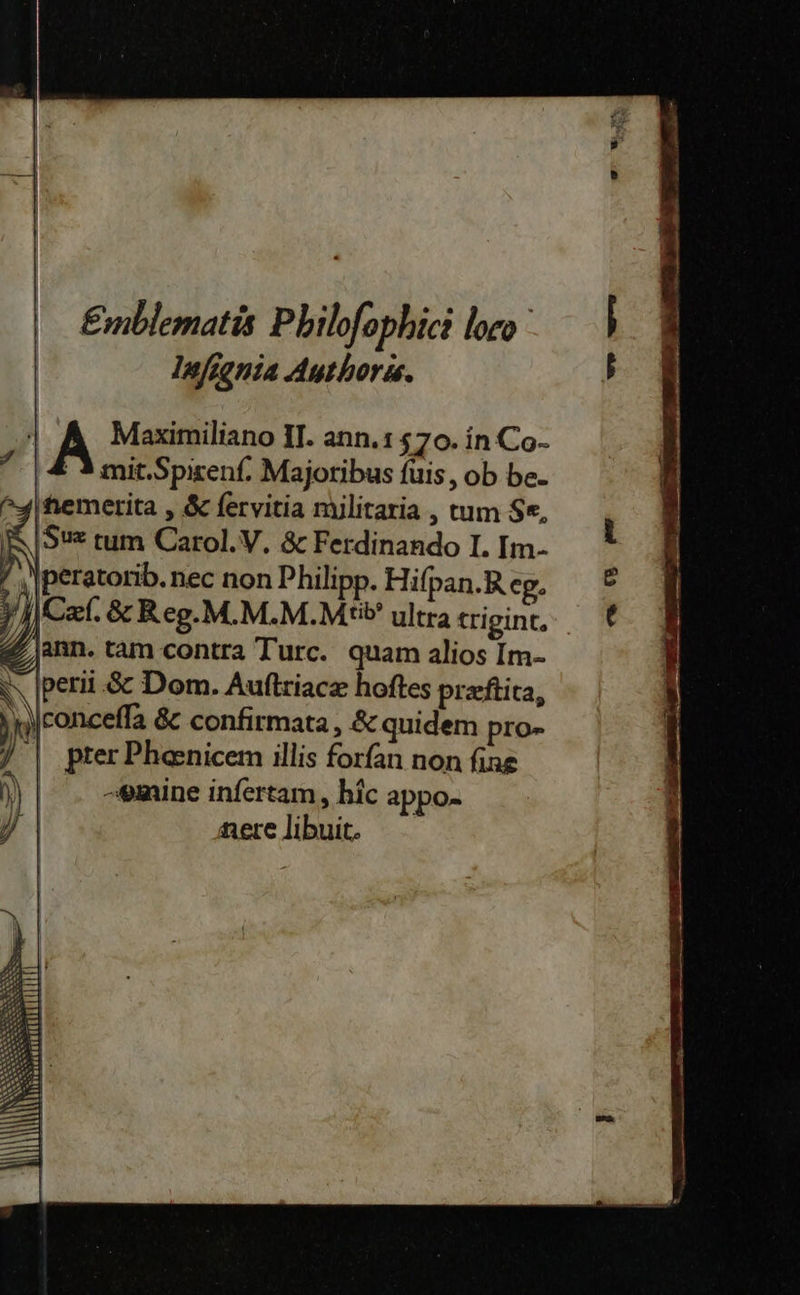 Emblematis Philoſophici loco
Inſignia Authoris.
A Maximiliano II. ann. 1570. in Co-
mit. Spirenſ. Majoribus ſuis, ob be-
nemerita, & ſervitia militaria, tum Sæ,
Suæ tum Carol. V. & Ferdinando I. Im-
peratorib. nec non Philipp. Hiſpan. Reg.
Cæſ. & Reg. M.M.M. Mtib' ultra trigint.
ann. tam contra Turc. quam alios Im-
perii & Dom. Auſtriacæ hoſtes præſtita,
conceſſa & confirmata, & quidem pro-
pter Phœnicem illis forſan non ſine
omine inſertam, hîc appo-
nere libuit.